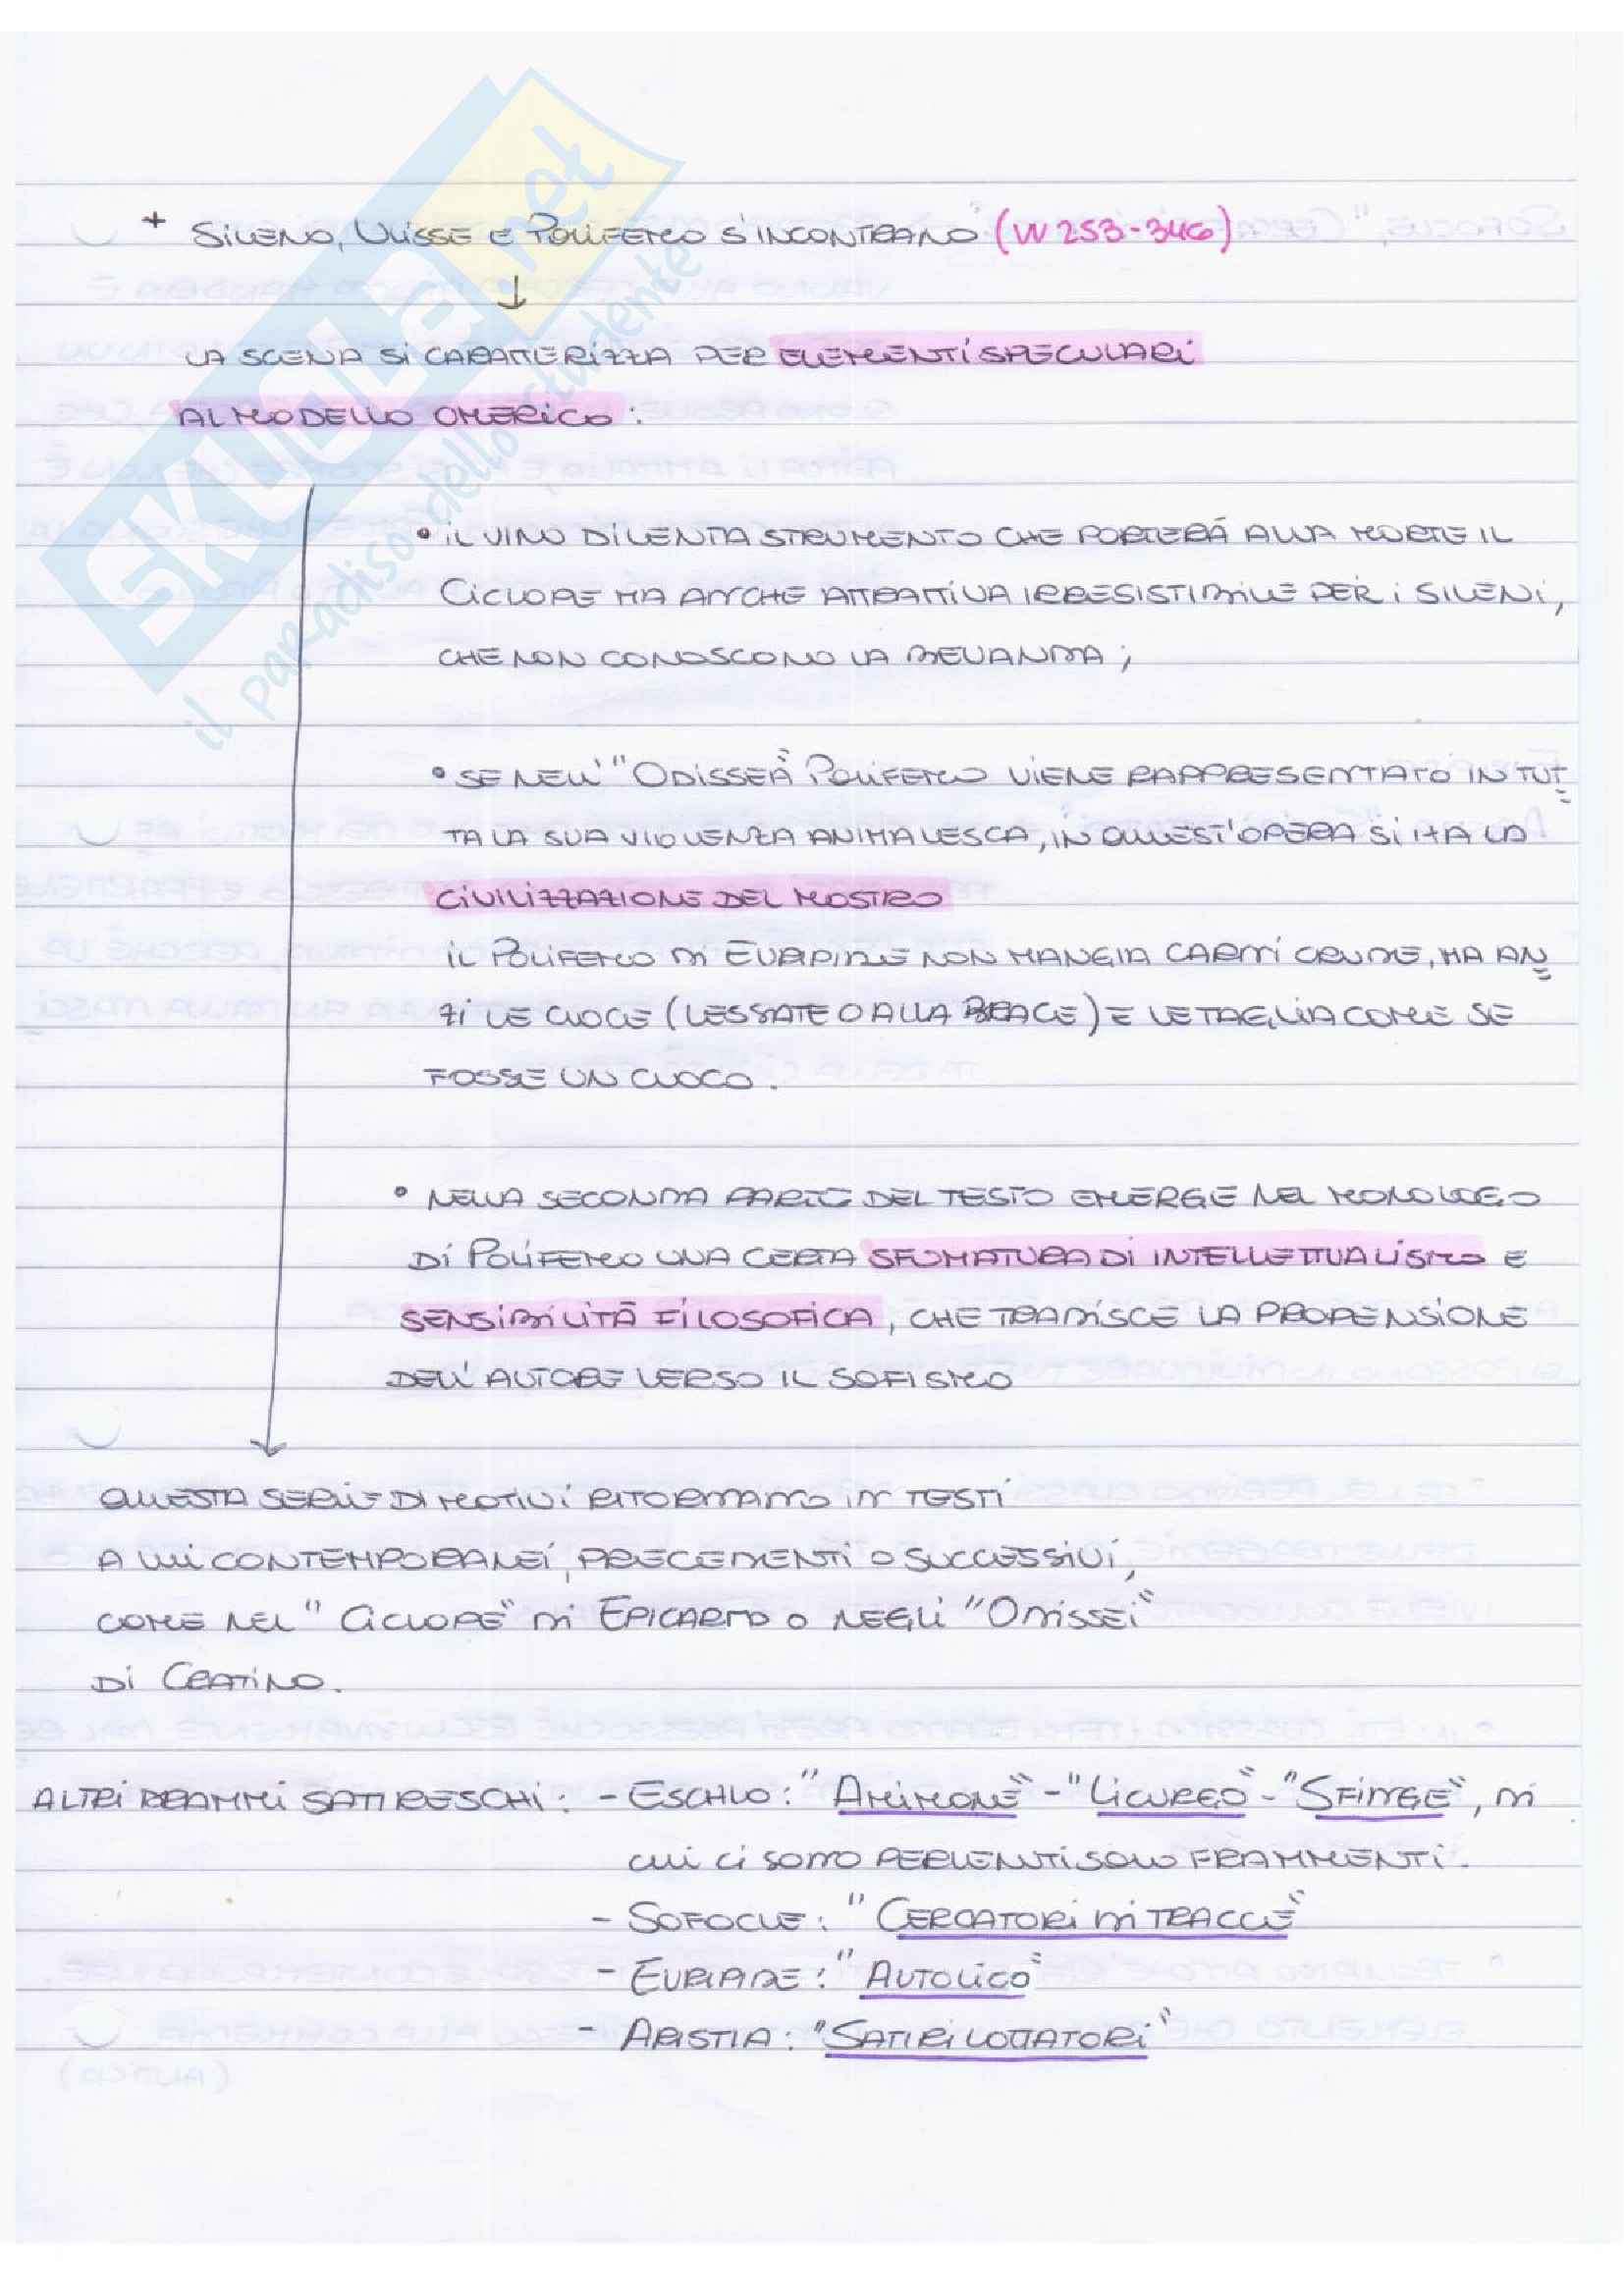 + SILENO, ULISSE E POLIFEMO S'INCONTRANO (VV 253-346)
↓
LA SCENA SI CARATTERIZZA PER ELEMENTI SPECULARI
AL MODELLO OMERICO:
• IL VINO DIVENTA STRUMENTO CHE PORTERÁ ALLA MORTE IL
CICLOPE MA ANCHE ATTRATTIVA IRRESISTIBILE PER I SILENI,
CHE NON CONOSCONO LA BEVANDA;
• SE NELL'"ODISSEA" POLIFEMO VIENE RAPPRESENTATO IN TUT=
TA LA SUA VIOLENZA ANIMALESCA, IN QUEST'OPERA SI HA LA
CIVILIZZAZIONE DEL MOSTRO
IL POLIFEMO DI EURIPIDE NON MANGIA CARNI CRUDE, MA AN=
ZI LE CUOCE (LESSATE O ALLA BRACE) E LE TAGLIA COME SE
FOSSE UN CUOCO.
• NELLA SECONDA PARTE DEL TESTO EMERGE NEL MONOLOGO
DI POLIFEMO UNA CERTA SFUMATURA DI INTELLETTUALISMO E
SENSIBILITÀ FILOSOFICA, CHE TRADISCE LA PROPENSIONE
DELL'AUTORE VERSO IL SOFISMO
QUESTA SERIE DI MOTIVI RITORNANO IN TESTI
A LUI CONTEMPORANEI, PRECEDENTI O SUCCESSIVI,
COME NEL "CICLOPE" DI EPICARMO O NEGLI "ODISSEI"
DI CRATINO.
ALTRI DRAMMI SATIRESCHI: - ESCHILO: "AMIMONE" - "LICURGO" - "SFINGE", DI
CUI CI SONO PERVENUTI SOLO FRAMMENTI.
- SOFOCLE: "CERCATORI DI TRACCE"
- EURIPIDE: "AUTOLICO"
- ARISTIA: "SATIRI LOTTATORI"
SKUOLA.net
il paradiso dello studente